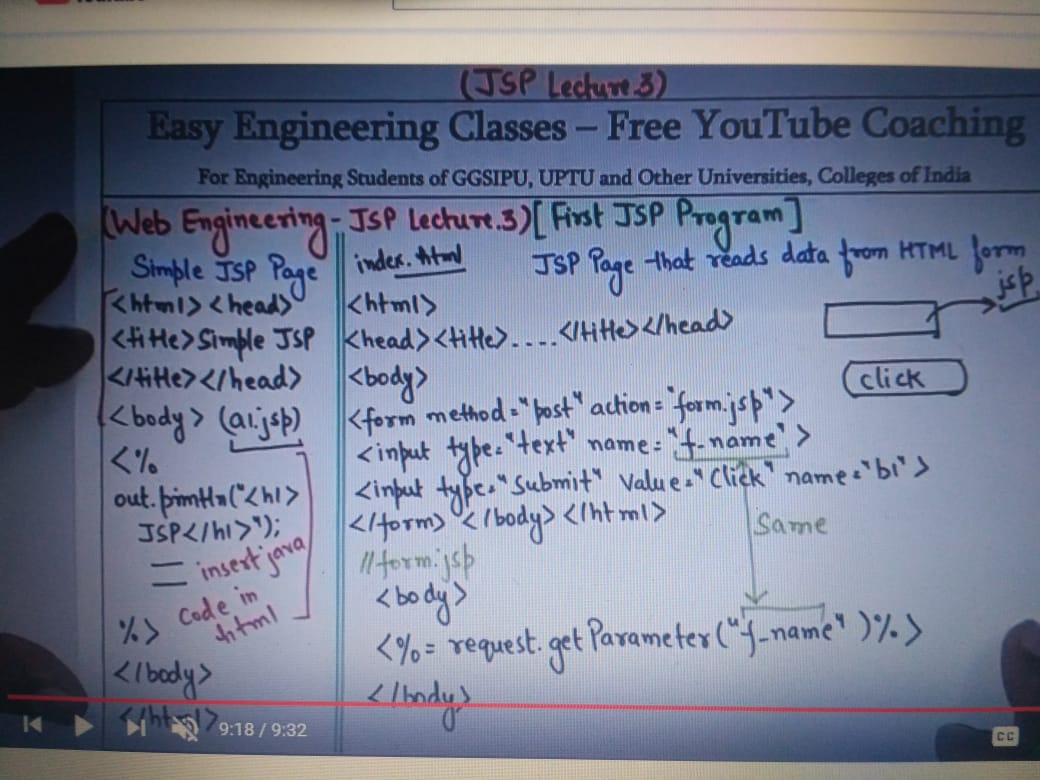 (JSP Lecture.3)
Easy Engineering Classes – Free YouTube Coaching
For Engineering Students of GGSIPU, UPTU and Other Universities, Colleges of India
(Web Engineering - JSP Lecture.3) [First JSP Program]
Simple JSP Page
<html> <head>
<title> Simple JSP
</title></head>
<body> (a1.jsp)
<%
out.println("<h1>
JSP</h1>");
insert java
code in
html
%>
</body>
</html>
index.html
JSP Page that reads data from HTML form
jsp
<html>
<head><title>....</title></head>
click
<body>
<form method="post" action="form.jsp">
<input type="text" name="f-name">
<input type="Submit" value="Click" name="b1">
</form> </body></html>
Same
//form.jsp
<body>
<%= request.getParameter("f-name")%>
</body>
9:18 / 9:32
CC